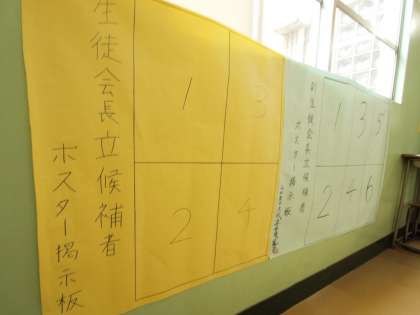 生徒会長立候補者
ポスター掲示板
1 3
2 4
副生徒会長立候補者
ポスター掲示板
1 3 5
2 4 6